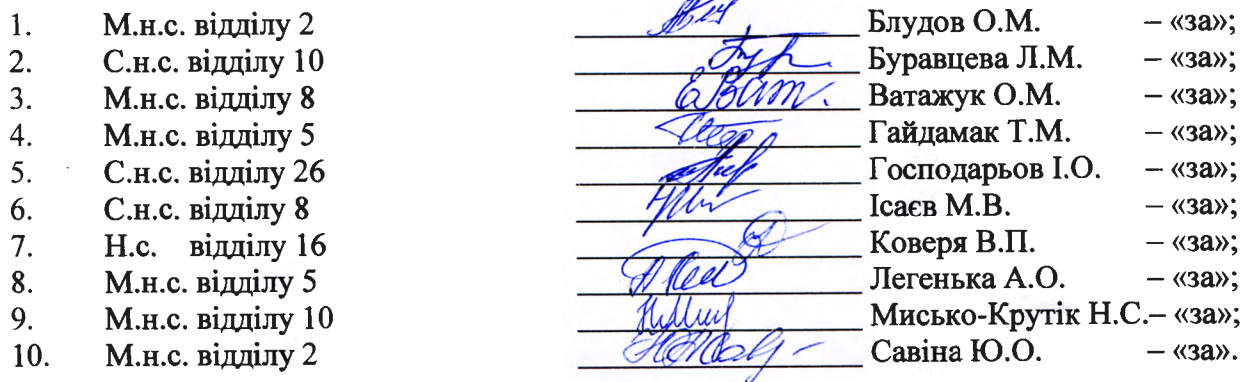 1. М.н.с. відділу 2 Блудов О.М. – «за»;
2. С.н.с. відділу 10 Буравцева Л.М. – «за»;
3. М.н.с. відділу 8 Ватажук О.М. – «за»;
4. М.н.с. відділу 5 Гайдамак Т.М. – «за»;
5. С.н.с. відділу 26 Господарьов І.О. – «за»;
6. С.н.с. відділу 8 Ісаєв М.В. – «за»;
7. Н.с. відділу 16 Коверя В.П. – «за»;
8. М.н.с. відділу 5 Легенька А.О. – «за»;
9. М.н.с. відділу 10 Мисько-Крутік Н.С.– «за»;
10. М.н.с. відділу 2 Савіна Ю.О. – «за».